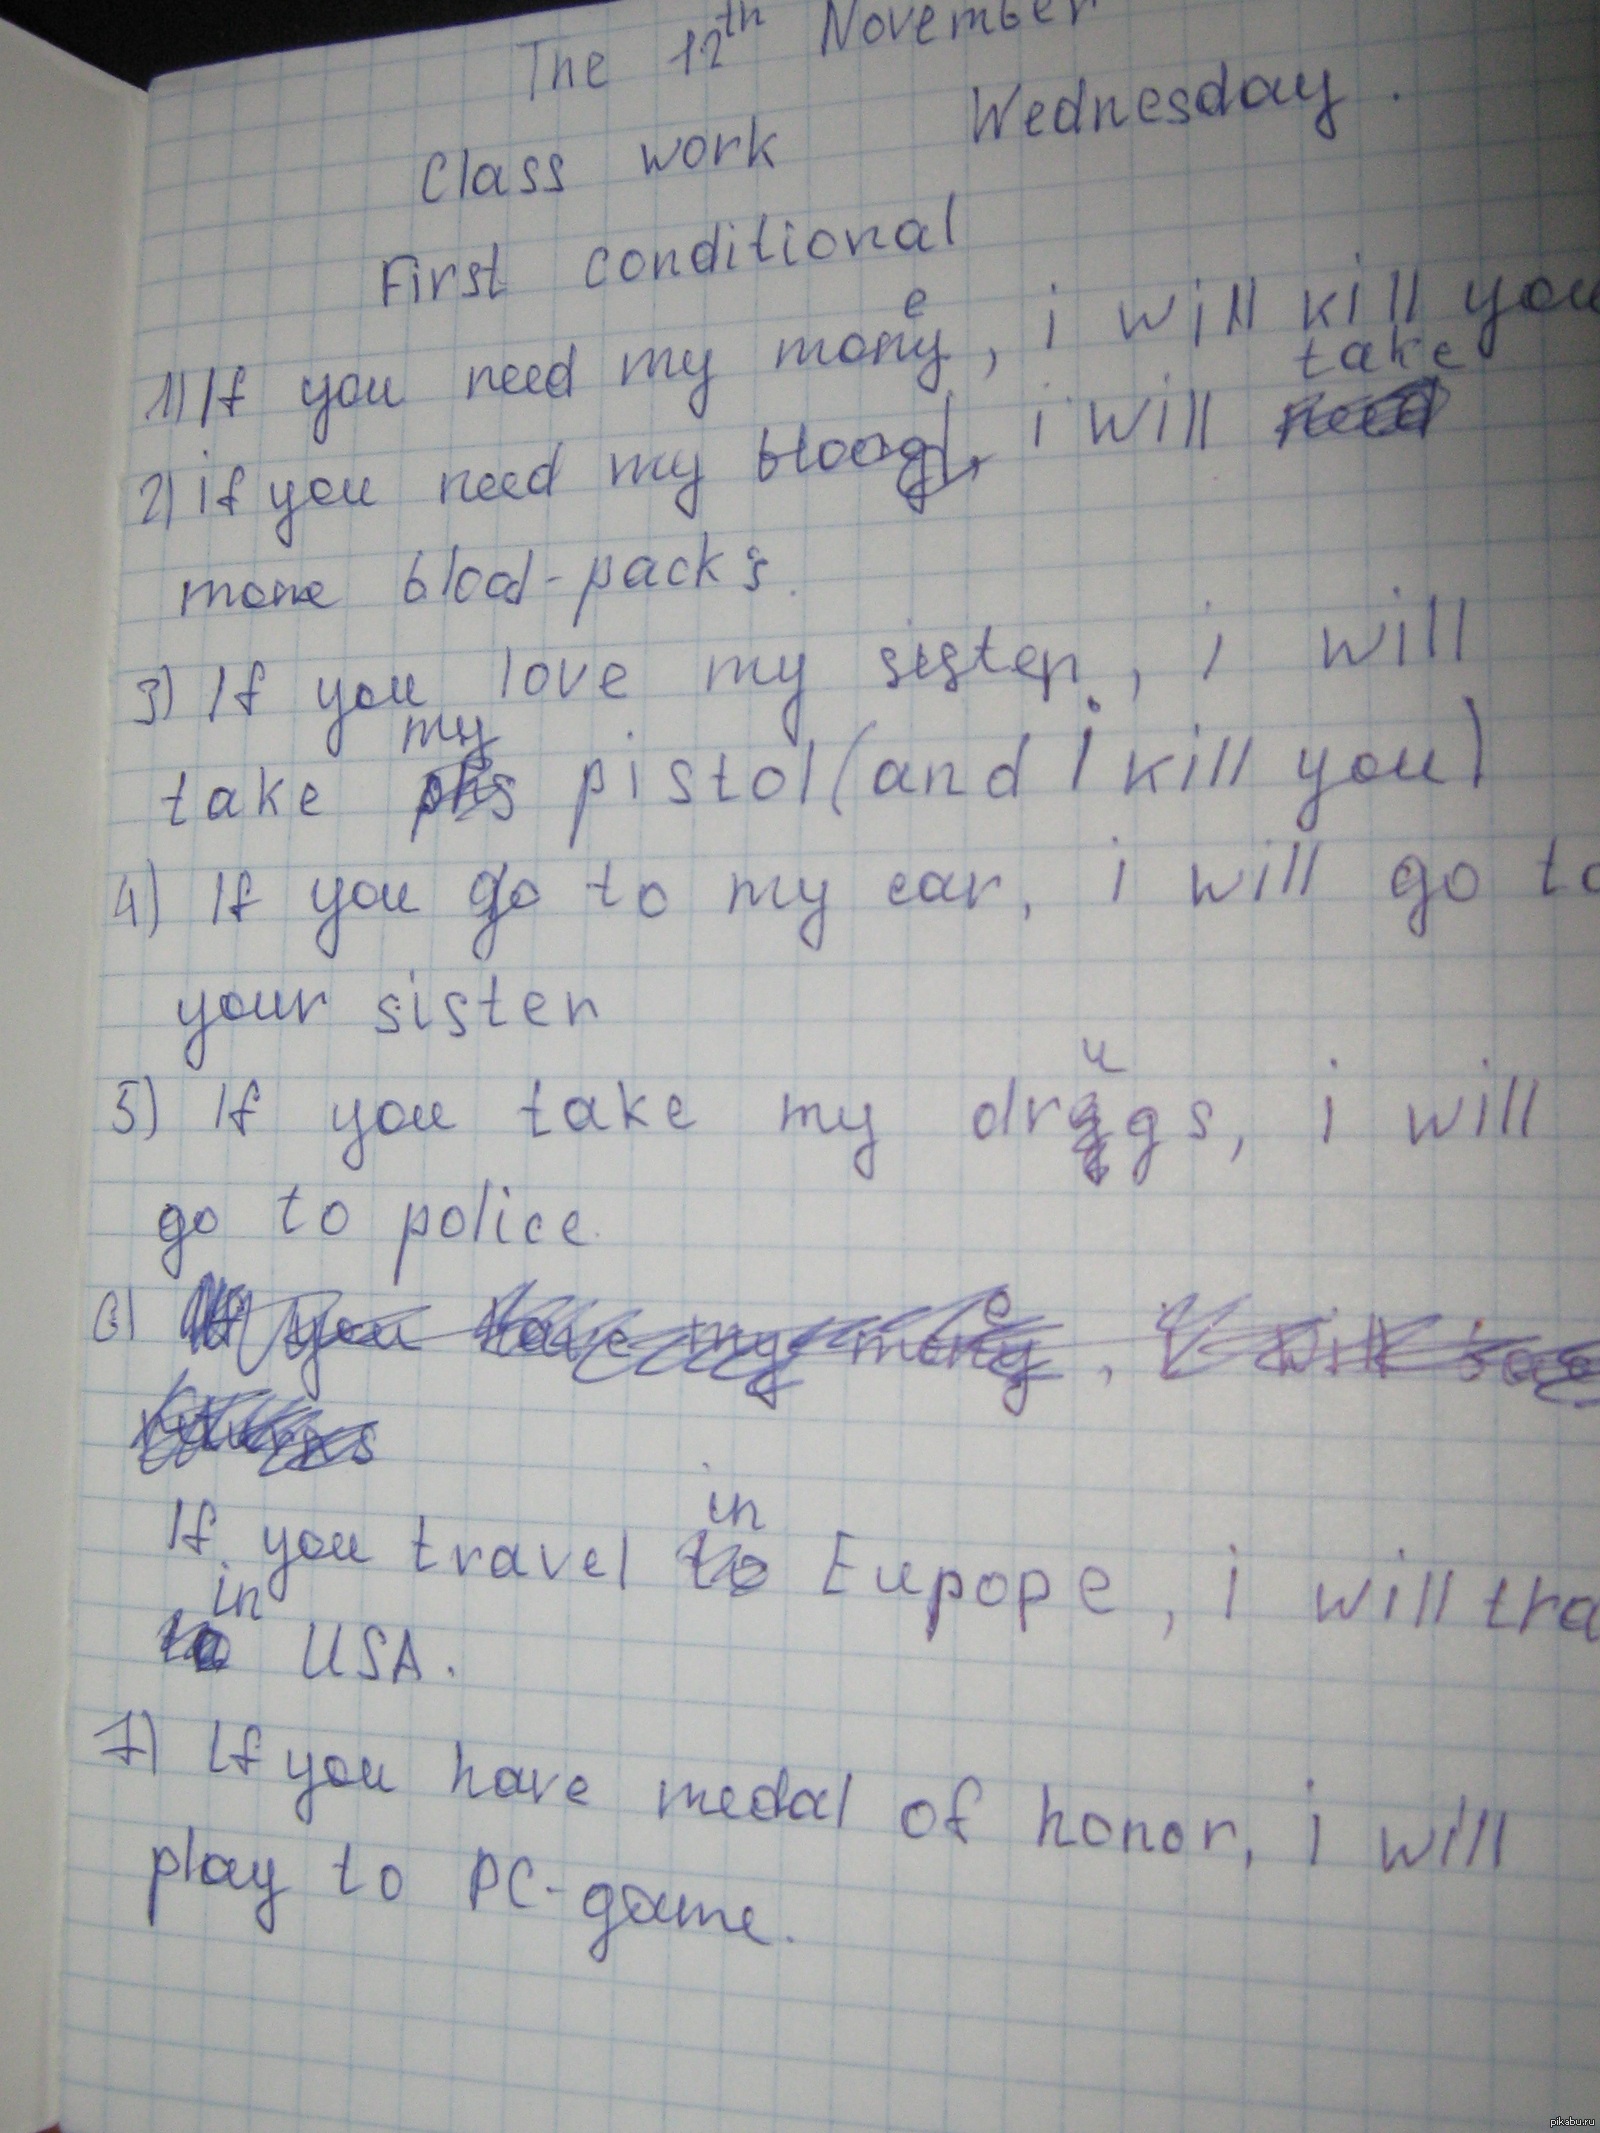 The 12th November
Class work Wednesday.
First conditional
1) If you need my money, i will kill you
2) if you need my blood, i will take
more blood-packs.
3) If you love my sister, i will
take my pistol (and i kill you)
4) If you go to my car, i will go to
your sister
5) If you take my drugs, i will
go to police.
6) If you have my money, i will
If you travel in Eupope, i will tra
in USA.
7) If you have medal of honor, i will
play to PC-game.
pikabu.ru